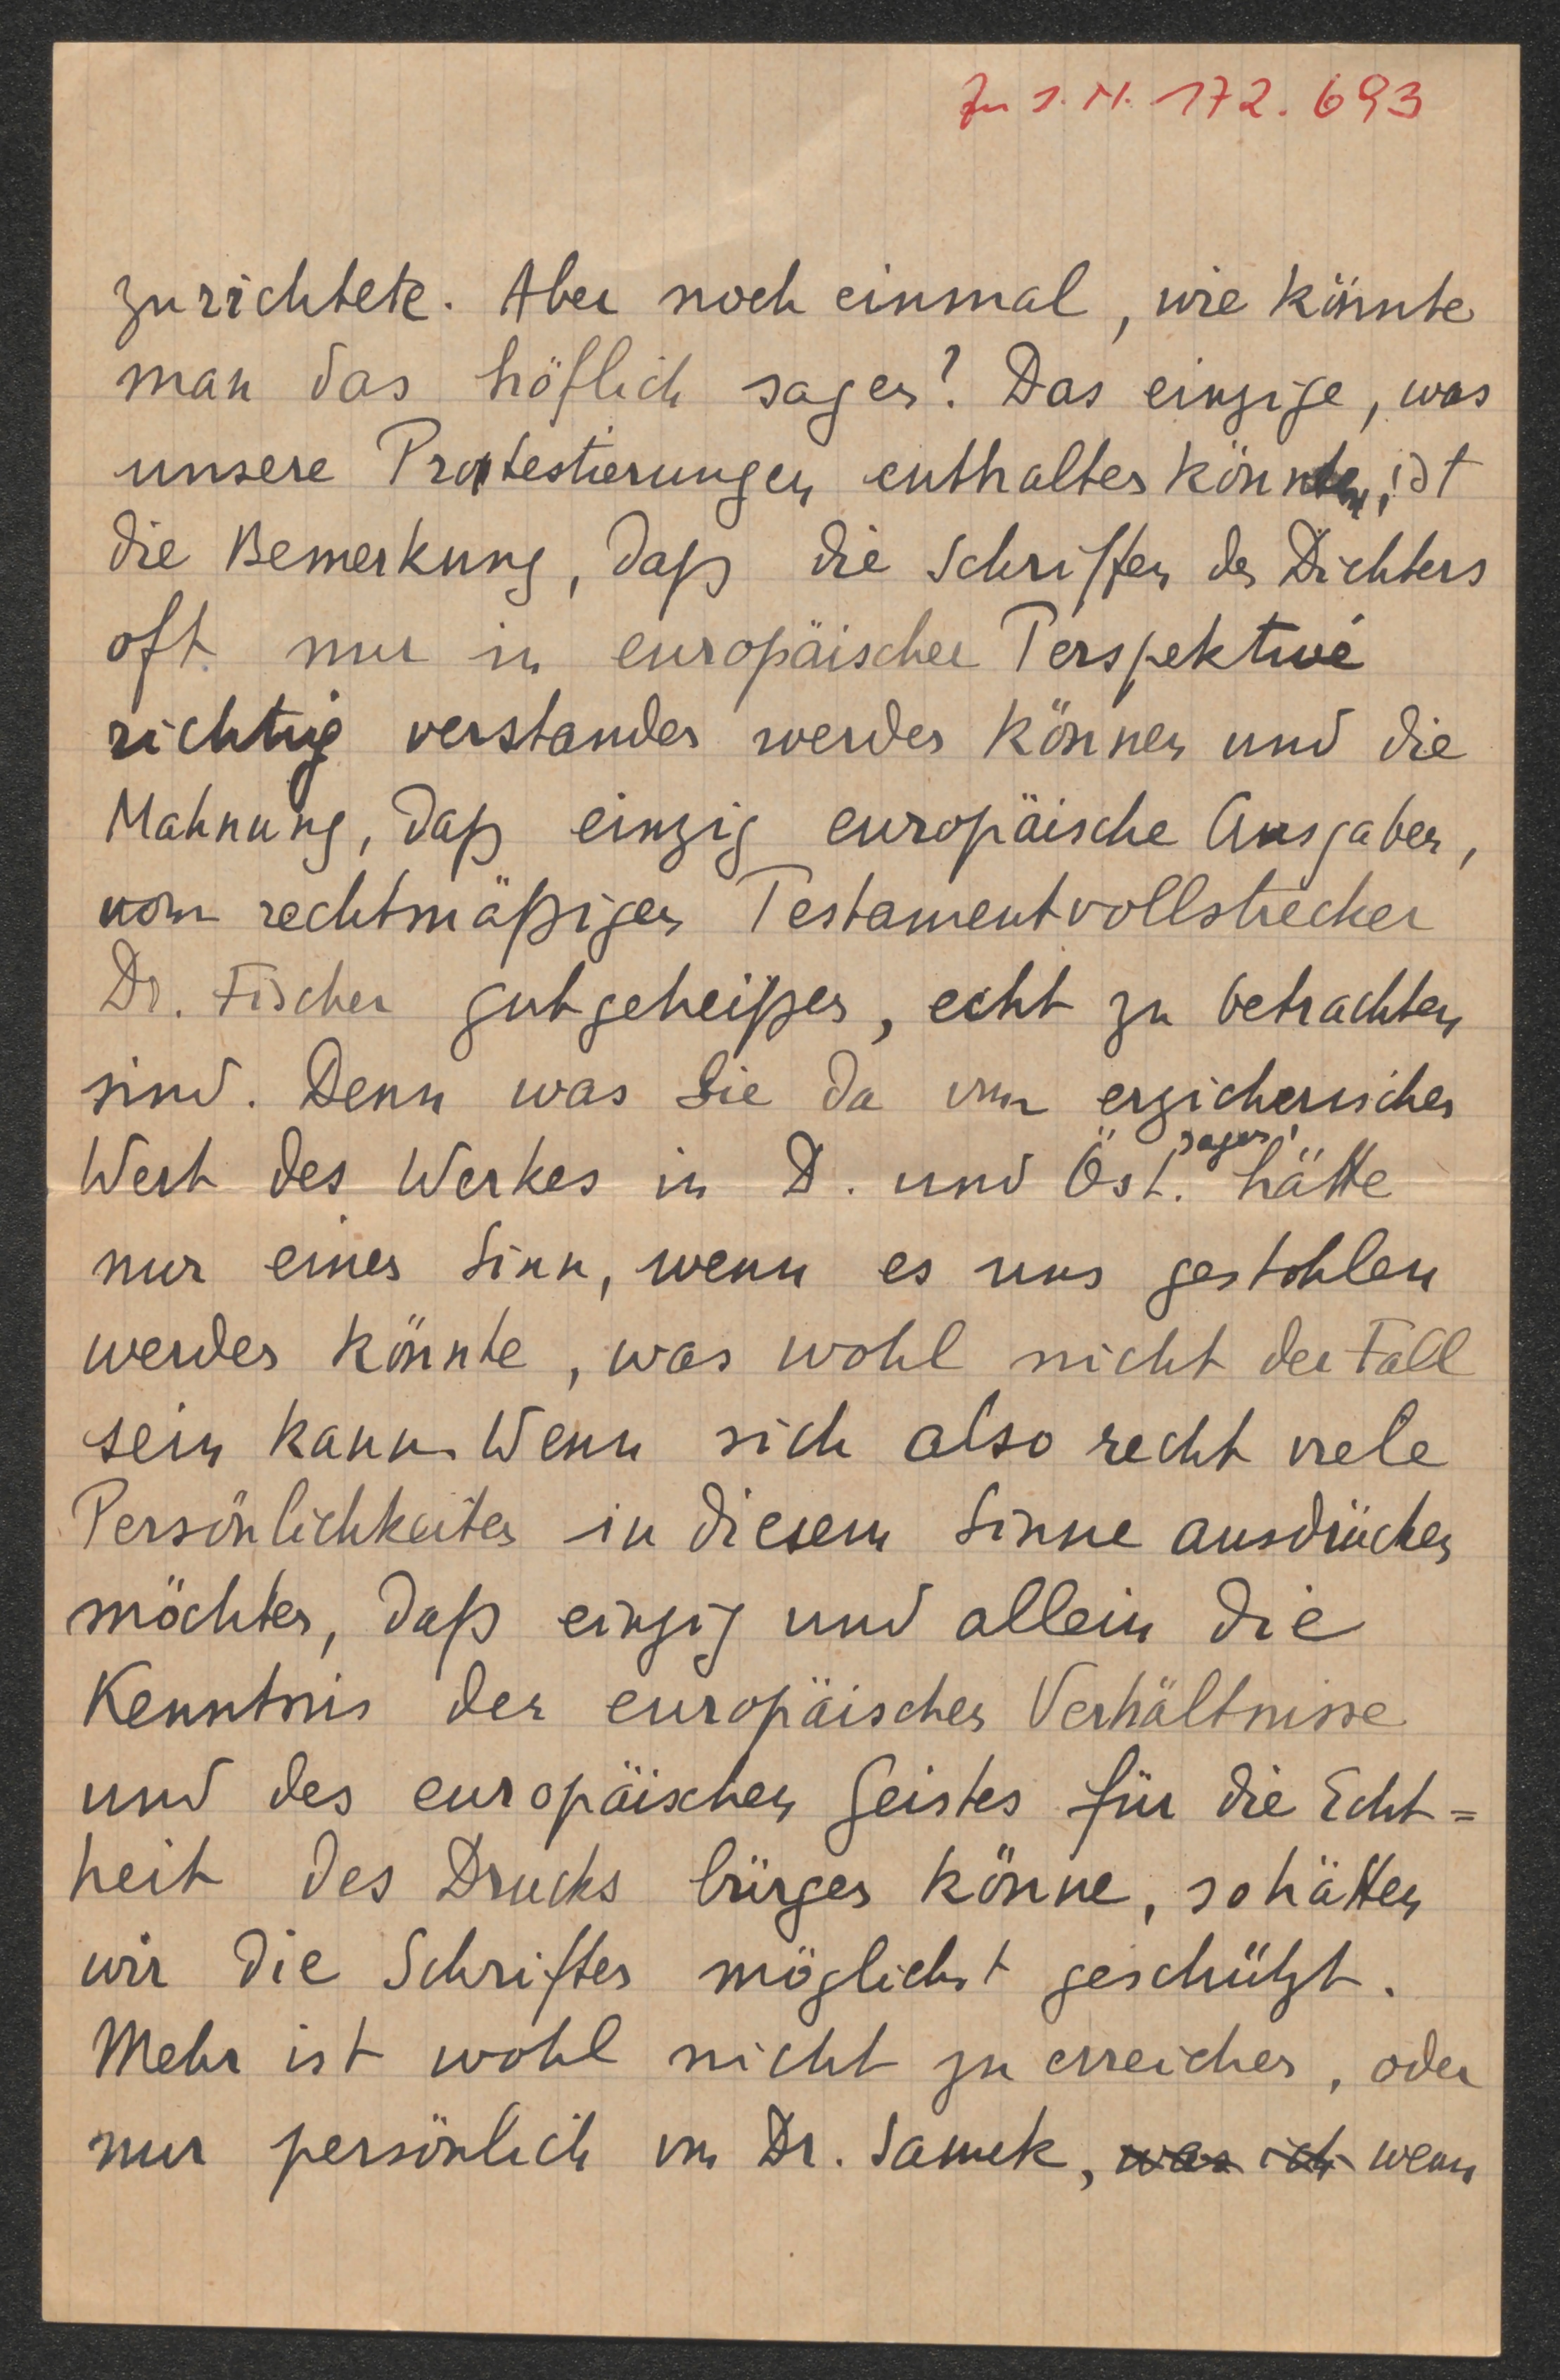 Zu I. N. 172.693
zurichtete. Aber noch einmal, wie könnte
man das höflich sagen? Das einzige, was
unsere Protestierungen enthalten könnten, ist
die Bemerkung, daß die Schriften des Dichters
oft nur in europäischer Perspektive
richtig verstanden werden können und die
Mahnung, daß einzig europäische Ausgaben,
vom rechtmäßigen Testamentvollstrecker
Dr. Fischer gutgeheißen, echt zu betrachten
sind. Denn was Sie da vom erzieherischen
Wert des Werkes in D. und Öst. sagen, hätte
nur einen Sinn, wenn es uns gestohlen
werden könnte, was wohl nicht der Fall
sein kann. Wenn sich also recht viele
Persönlichkeiten in diesem Sinne ausdrücken
möchten, daß einzig und allein die
Kenntnis der europäischen Verhältnisse
und des europäischen Geistes für die Echt=
heit des Drucks bürgen könne, so hätten
wir die Schriften möglichst geschützt.
Mehr ist wohl nicht zu erreichen, oder
nur persönlich von Dr. Samek, was ich wenn